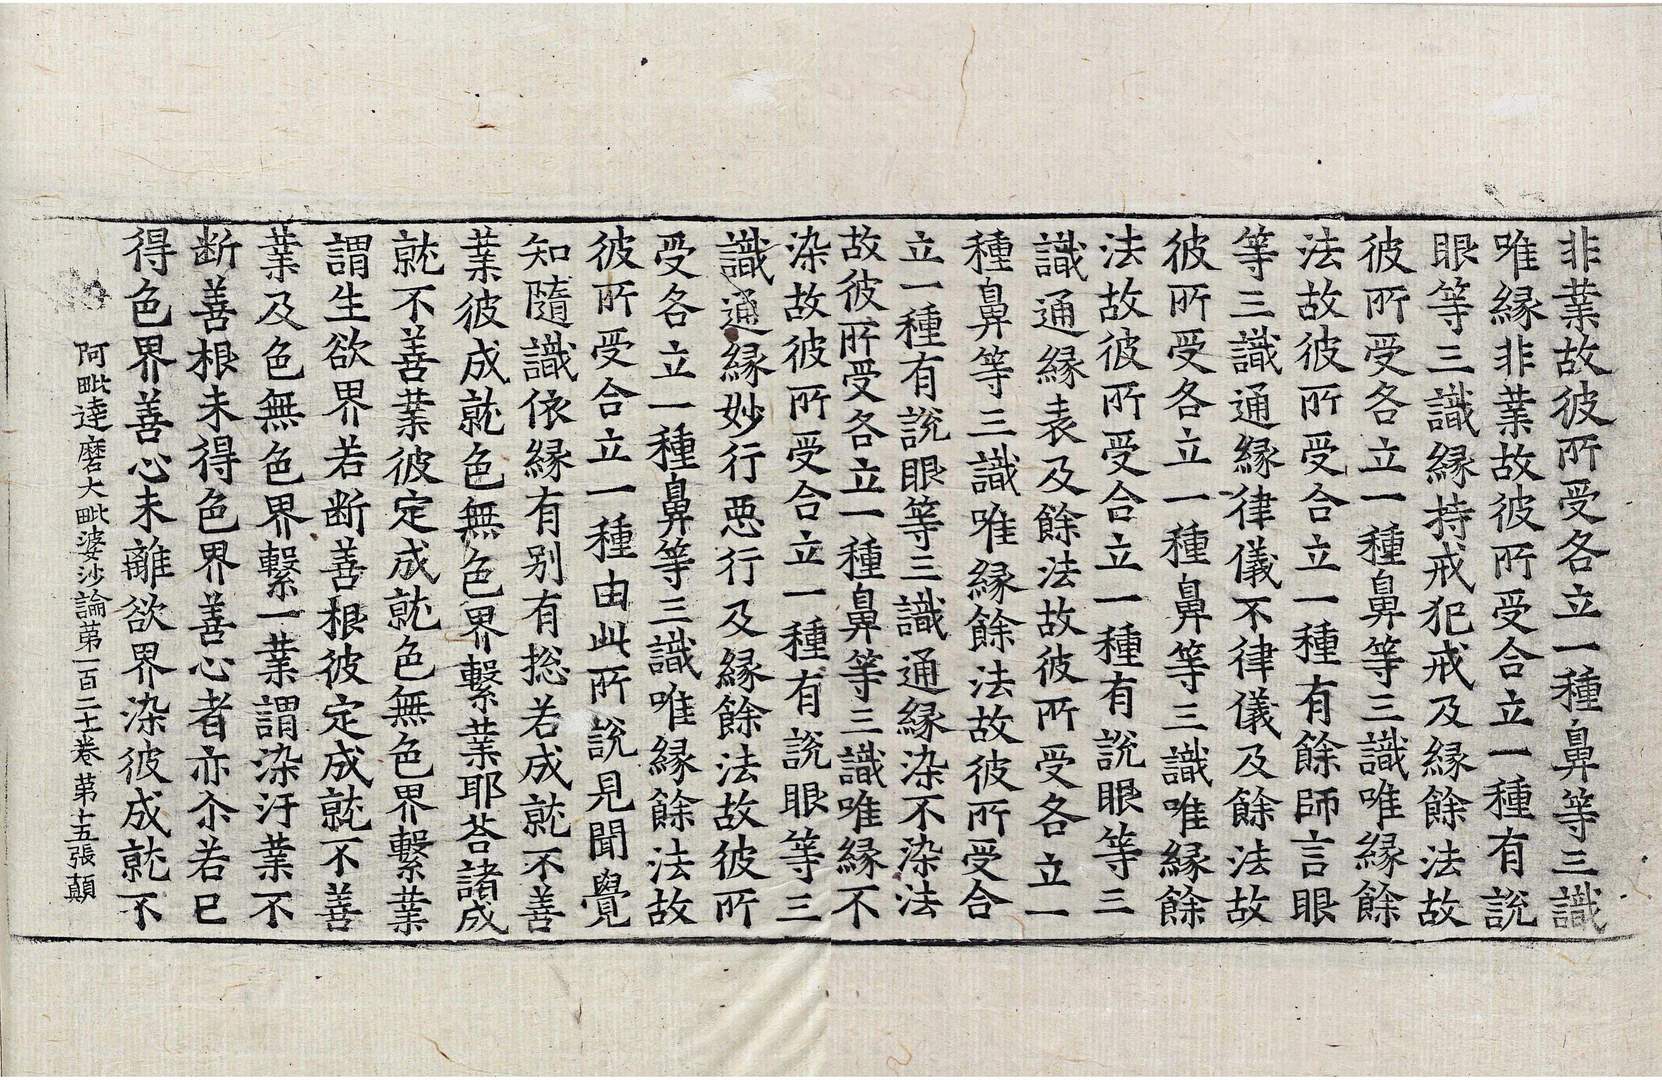 非業故彼所受各立一種鼻等三識
唯縁非業故彼所受合立一種有說
眼等三識縁持戒犯戒及縁餘法故
彼所受各立一種鼻等三識唯縁餘
法故彼所受合立一種有餘師言眼
等三識通縁律儀不律儀及餘法故
彼所受各立一種鼻等三識唯縁餘
法故彼所受合立一種有說眼等三
識通縁表及餘法故彼所受各立一
種鼻等三識唯縁餘法故彼所受合
立一種有說眼等三識通縁染不染法
故彼所受各立一種鼻等三識唯縁不
染故彼所受合立一種有說眼等三
識通縁妙行惡行及縁餘法故彼所
受各立一種鼻等三識唯縁餘法故
彼所受合立一種由此所說見聞覺
知隨識依縁有別有捴若成就不善
業彼成就色無色界繫業耶荅諸成
就不善業彼定成就色無色界繫業
謂生欲界若断善根彼定成就不善
業及色無色界繫一業謂染汙業不
断善根未得色界善心者亦尒若已
得色界善心未離欲界染彼成就不
阿毗達磨大毗婆沙論第一百二十卷 第十五張 顛